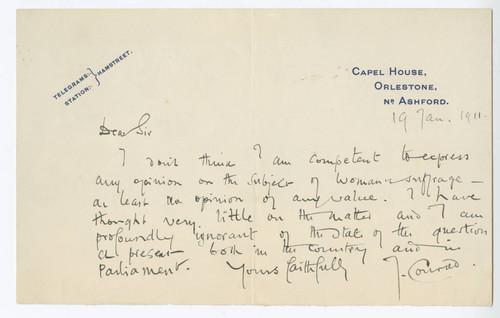 TELEGRAMS:
STATION:
HAMSTREET.
CAPEL HOUSE,
ORLESTONE,
NR ASHFORD.
19 Jan. 1911.
Dear Sir
I don't think I am competent to express
any opinion on the subject of Woman's suffrage –
at least no opinion of any value. I have
thought very little on the matter and I am
profoundly ignorant of the state of the question
at present both in the country and in
Parliament. Yours faithfully
J. Conrad.